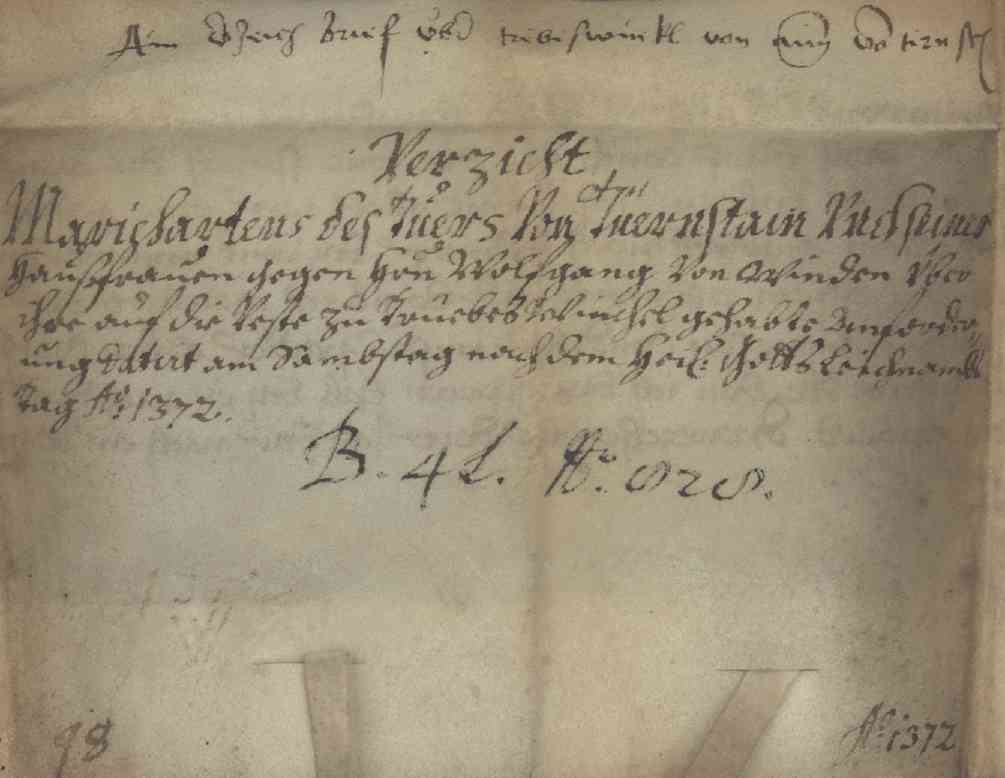 Ain vrzeich brief vber tribeswinkl von aim von tirnst
Verzicht
Marichartens des Tuers Von Tuernstain Vnd seiner
Haußfrauen gegen Hrn Wolfgang Von Winden vber
ihre auf die Veste zu Truebeswinchel gehabte Anforder„
ung datirt am Sambstag nach dem Heil: Gotts Leichnambs
Tag Ao. 1372.
B. 4 L. No. 828.
98
Ao. 1372